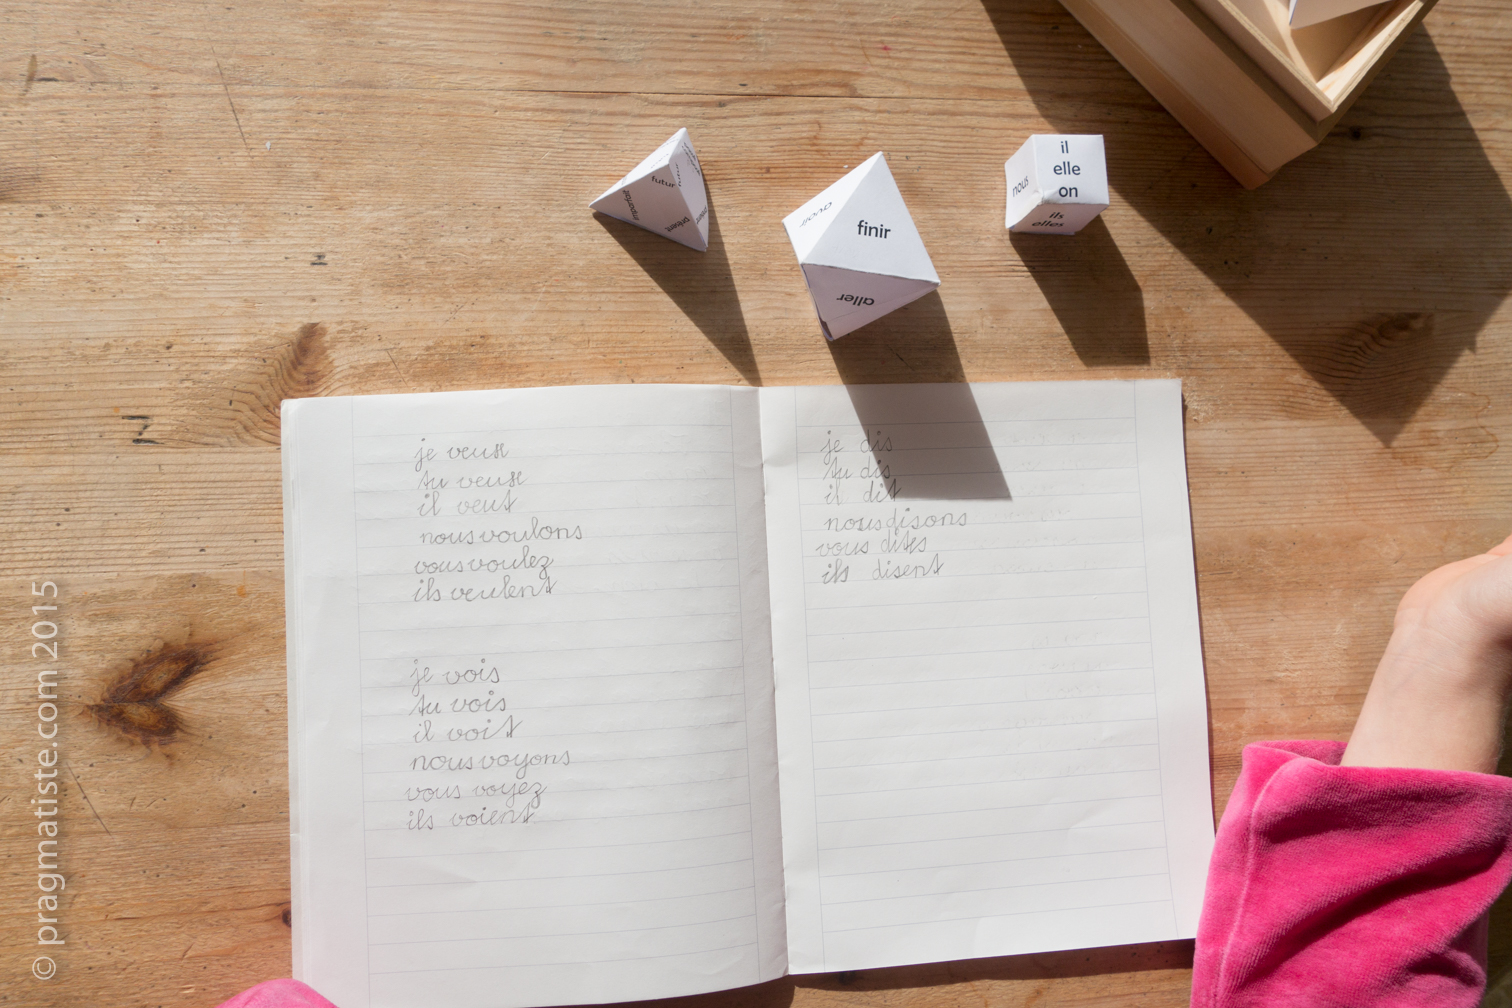 futur
imparfait
présent
avoir
finir
aller
il
elle
on
nous
ils
elles
je veux
tu veux
il veut
nous voulons
vous voulez
ils veulent
je vois
tu vois
il voit
nous voyons
vous voyez
ils voient
je dis
tu dis
il dit
nous disons
vous dites
ils disent
© pragmatiste.com 2015